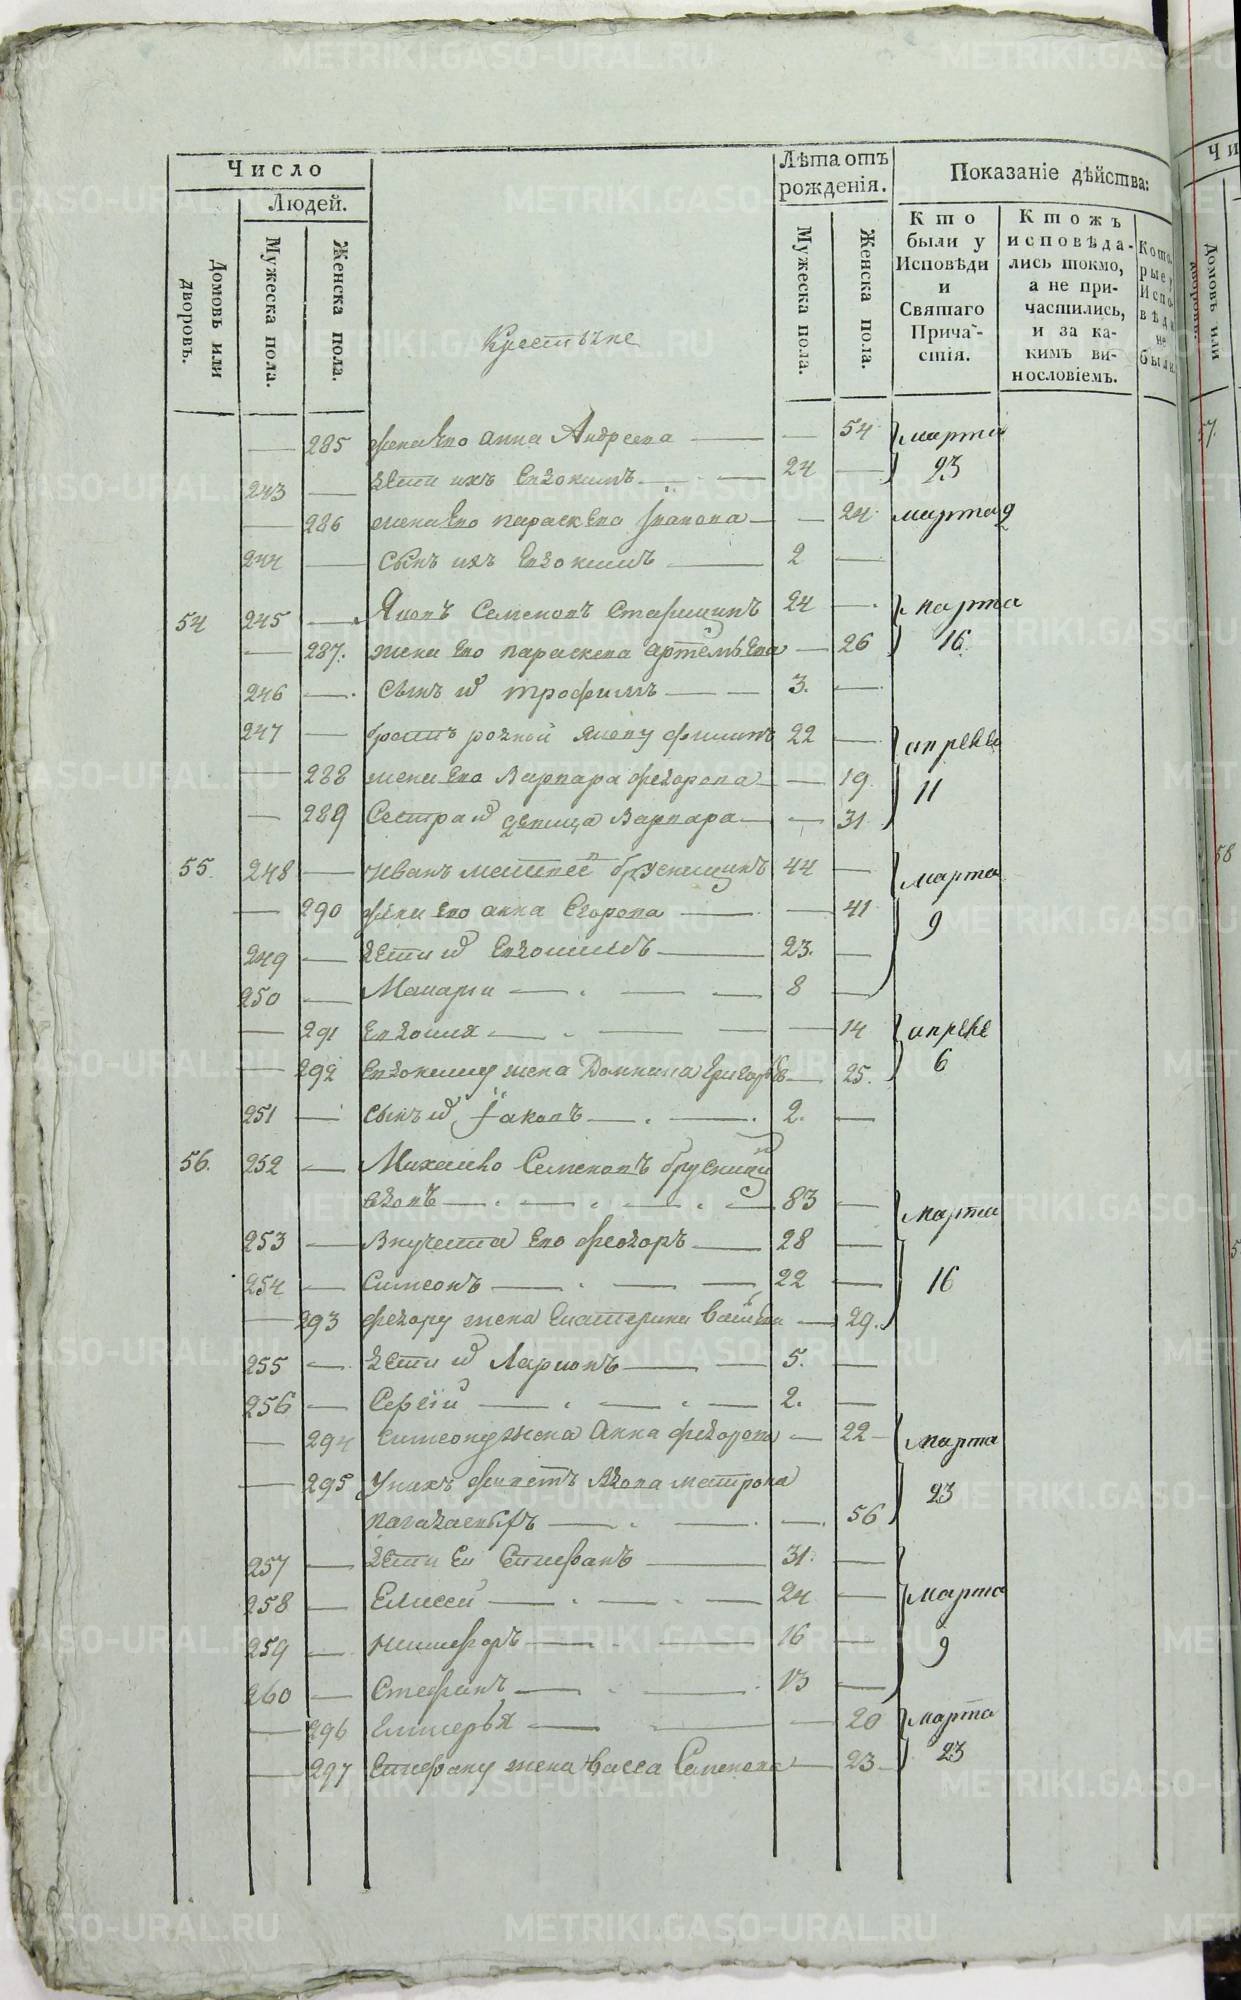 Число
Людей.
Домовъ или дворовъ.
Мужеска пола.
Женска пола.
Лѣта отъ рожденія.
Мужеска пола.
Женска пола.
Показаніе дѣйства:
Кто были у Исповѣди и Святаго Прича-стія.
Ктожъ исповѣда-лись токмо, а не при-частились, и за ка-кимъ ви-нословіемъ.
Кото-рые у Испо-вѣди не были.
Крестьяне
— 285 жена Его анна Андреева — — 54 марта
243 — дѣти ихъ Евдокимъ — 24 — 23
— 286 жена Его параскева Іванова — — 24 марта 2
244 — сынъ ихъ Евдокимъ — 2 —
54 245 — Яковъ Семеновъ 24 — марта
— 287. жена Его параскева артемьева — 26 16
246 — сынъ трофимъ — 3. —
247 — братъ родной якову филипъ 22 — апреля
— 288 жена Его Варвара федорова — 19. 11
— 289 Сестра девица Варвара — — 31
55. 248 — Иванъ 44 — марта
— 290 жена Его анна Егорова — — 41 9
249 — дѣти Евдокимъ — 23. —
250 — Макарей — 8 —
— 291 Евдокия — — 14 апреля
— 292 Евдокиму жена Домнина — 25. 6
251 — сынъ Іаковъ — 2. —
56. 252 — Михайло Семеновъ
— 83 — марта
253 — внучета Его Феодоръ — 28 —
254 — Симеонъ — 22 — 16
— 293 федору жена Екатерина — 29.
255 — дѣти Ларионъ — 5. —
256 — Сергій — 2. —
— 294 симеону жена Анна федорова — 22 — марта
— 295 У нихъ живетъ вдова матрона
— — 56 23
257 — дѣти Ея Епифанъ — 31. —
258 — Елисей — 24 — марта
259 — Никифоръ — 16 — 9
260 — Стефанъ — 13 —
— 296 — — 20 марта
— 297 Епифану жена васса Семенова — 23 — 23
57.
58
METRIKI.GASO-URAL.RU